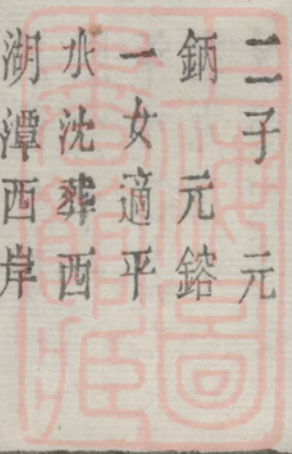 二子元
鈵元鎔
一女適平
水沈葬西
湖潭西岸